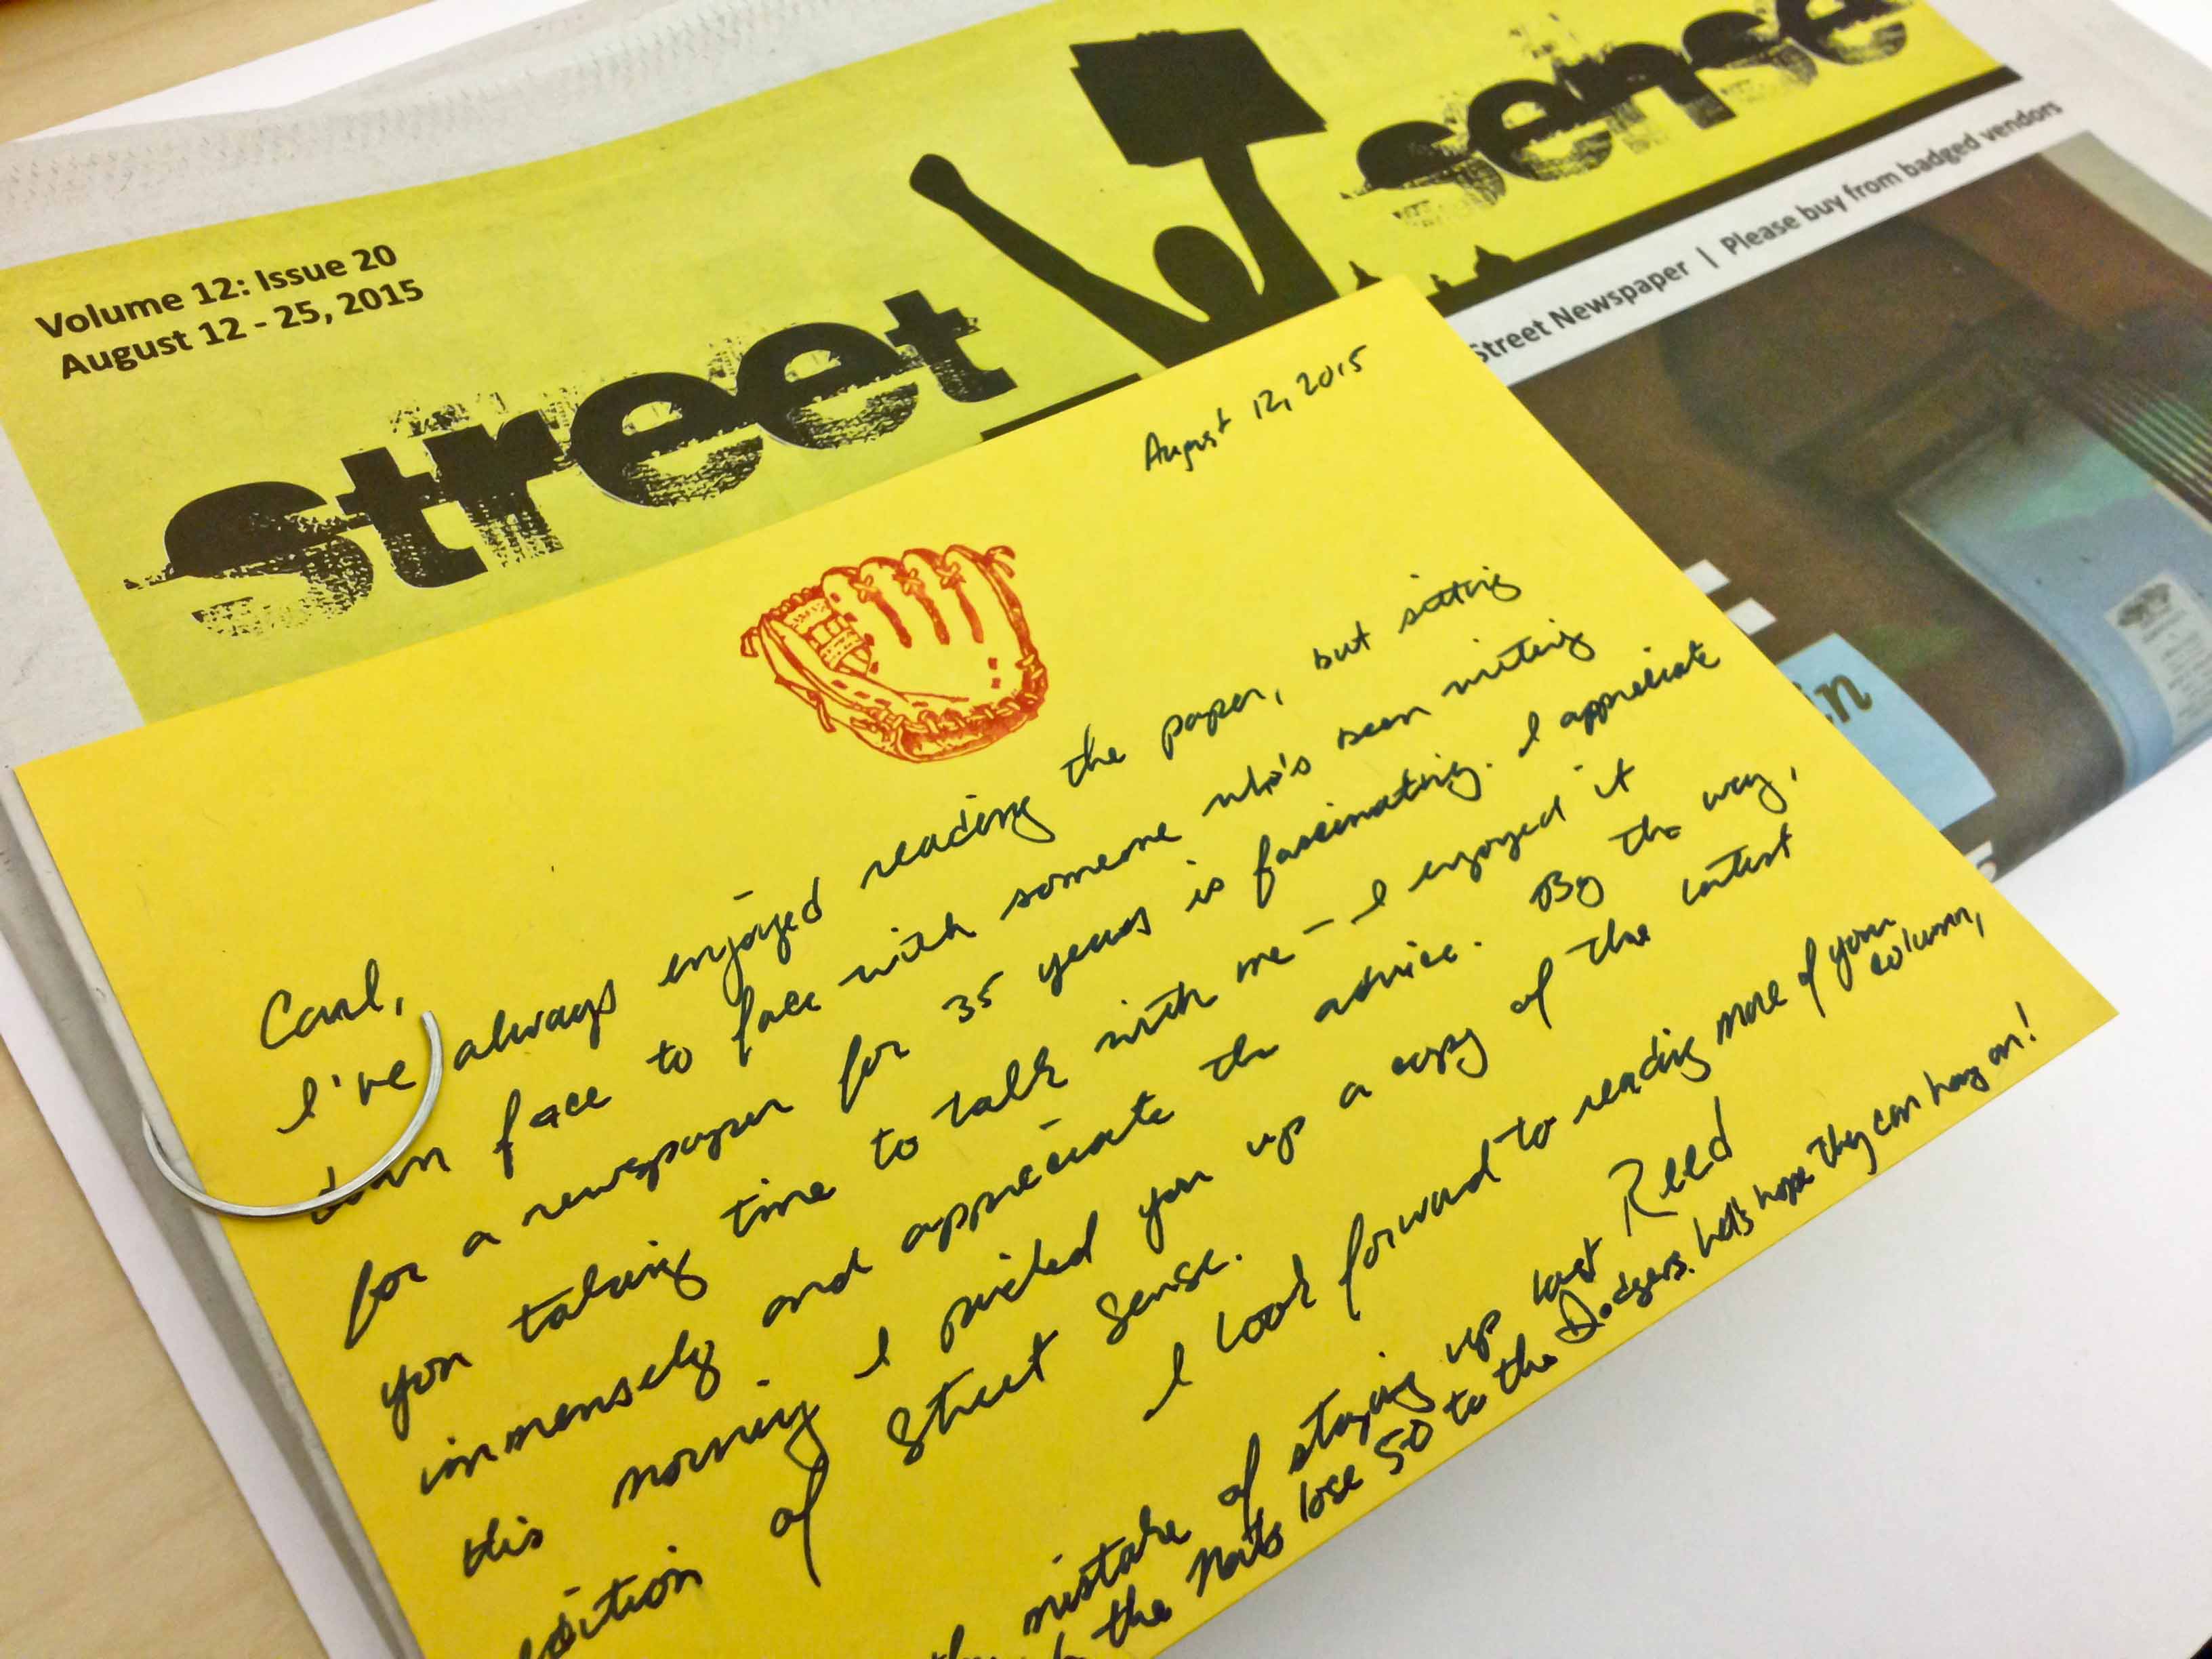 Volume 12: Issue 20
August 12 - 25, 2015
street sense
Street Newspaper | Please buy from badged vendors
August 12, 2015
Carl,
I've always enjoyed reading the paper, but sitting
down face to face with someone who's been writing
for a newspaper for 35 years is fascinating. I appreciate
you taking time to talk with me - I enjoyed it
immensely and appreciate the advice. By the way,
this morning I picked you up a copy of the latest
edition of Street Sense.
I look forward to reading more of your
column,
Reed
mistake of staying up last
the Nats lose 5-0 to the Dodgers. Let's hope they can hang on!